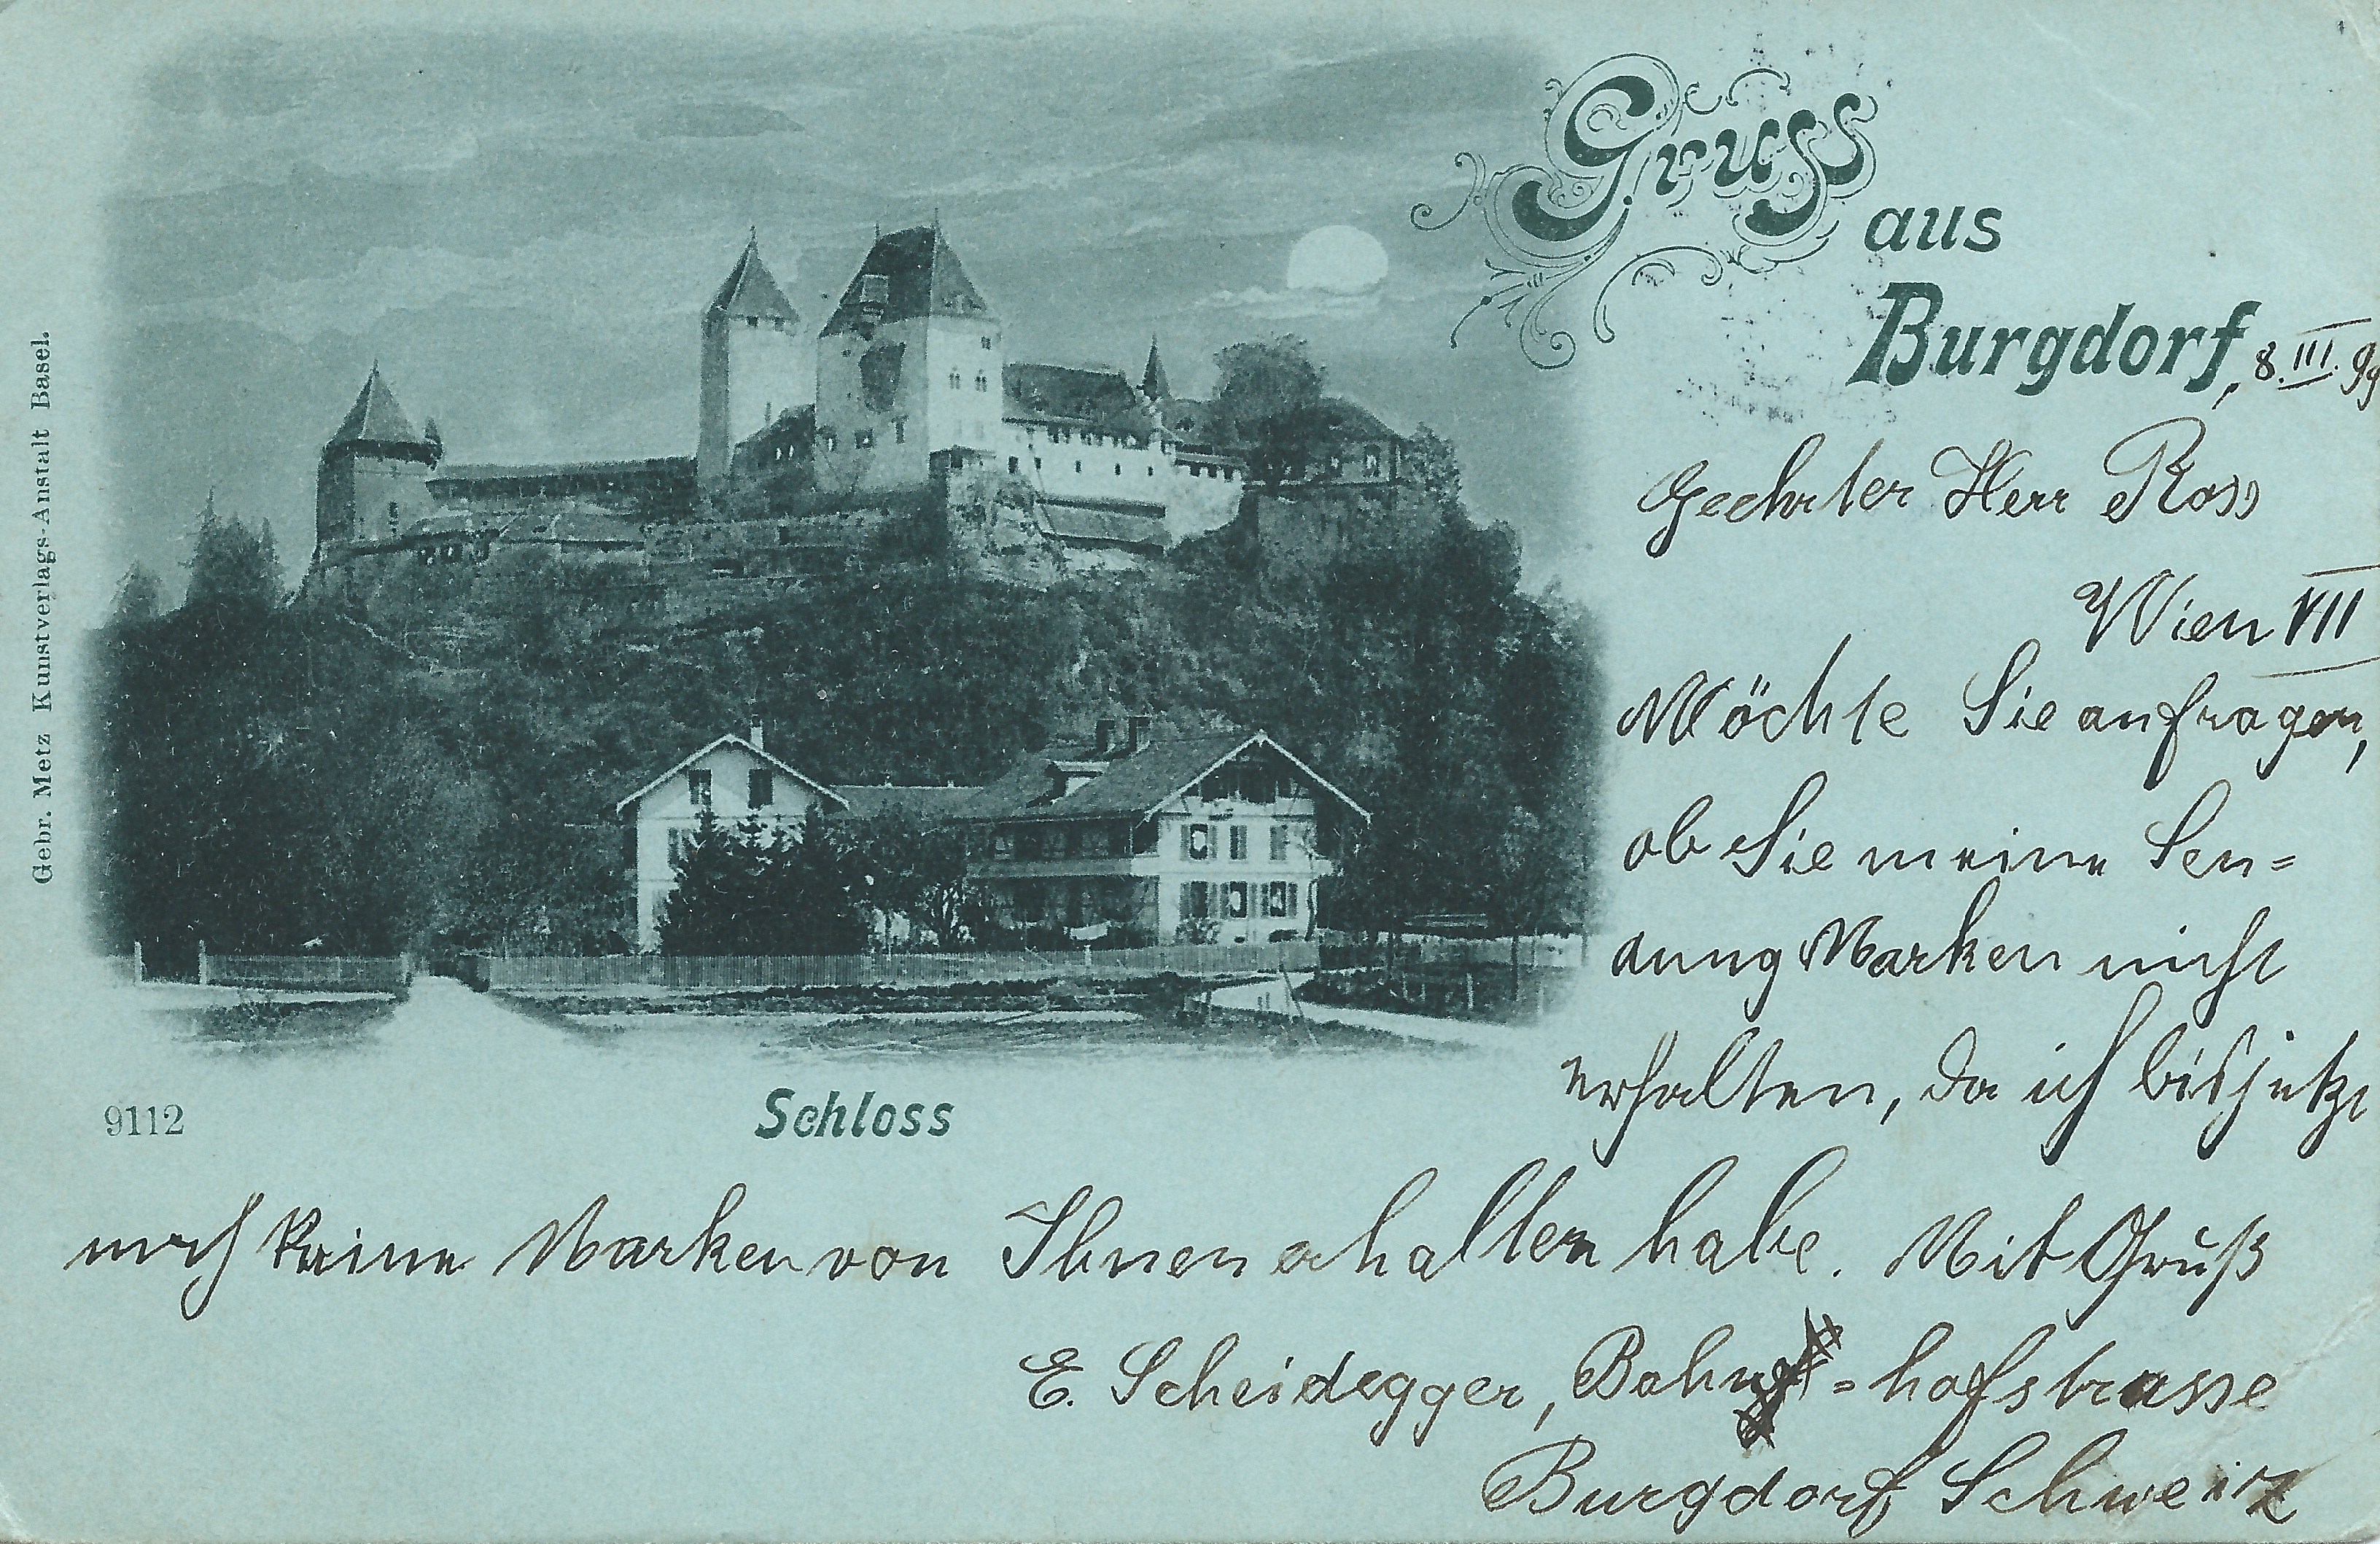 Gruss
aus
Burgdorf, 8. III. 99
Geehrter Herr Ross
Wien VII
Möchte Sie anfragen,
ob Sie meine Sen=
dung Marken nicht
erhalten, da ich bis jetzt
noch keine Marken von Ihnen erhalten habe. Mit Gruß
E. Scheidegger, Bahn=hofstrasse
Burgdorf, Schweiz
Schloss
9112
Gebr. Metz Kunstverlags-Anstalt Basel.